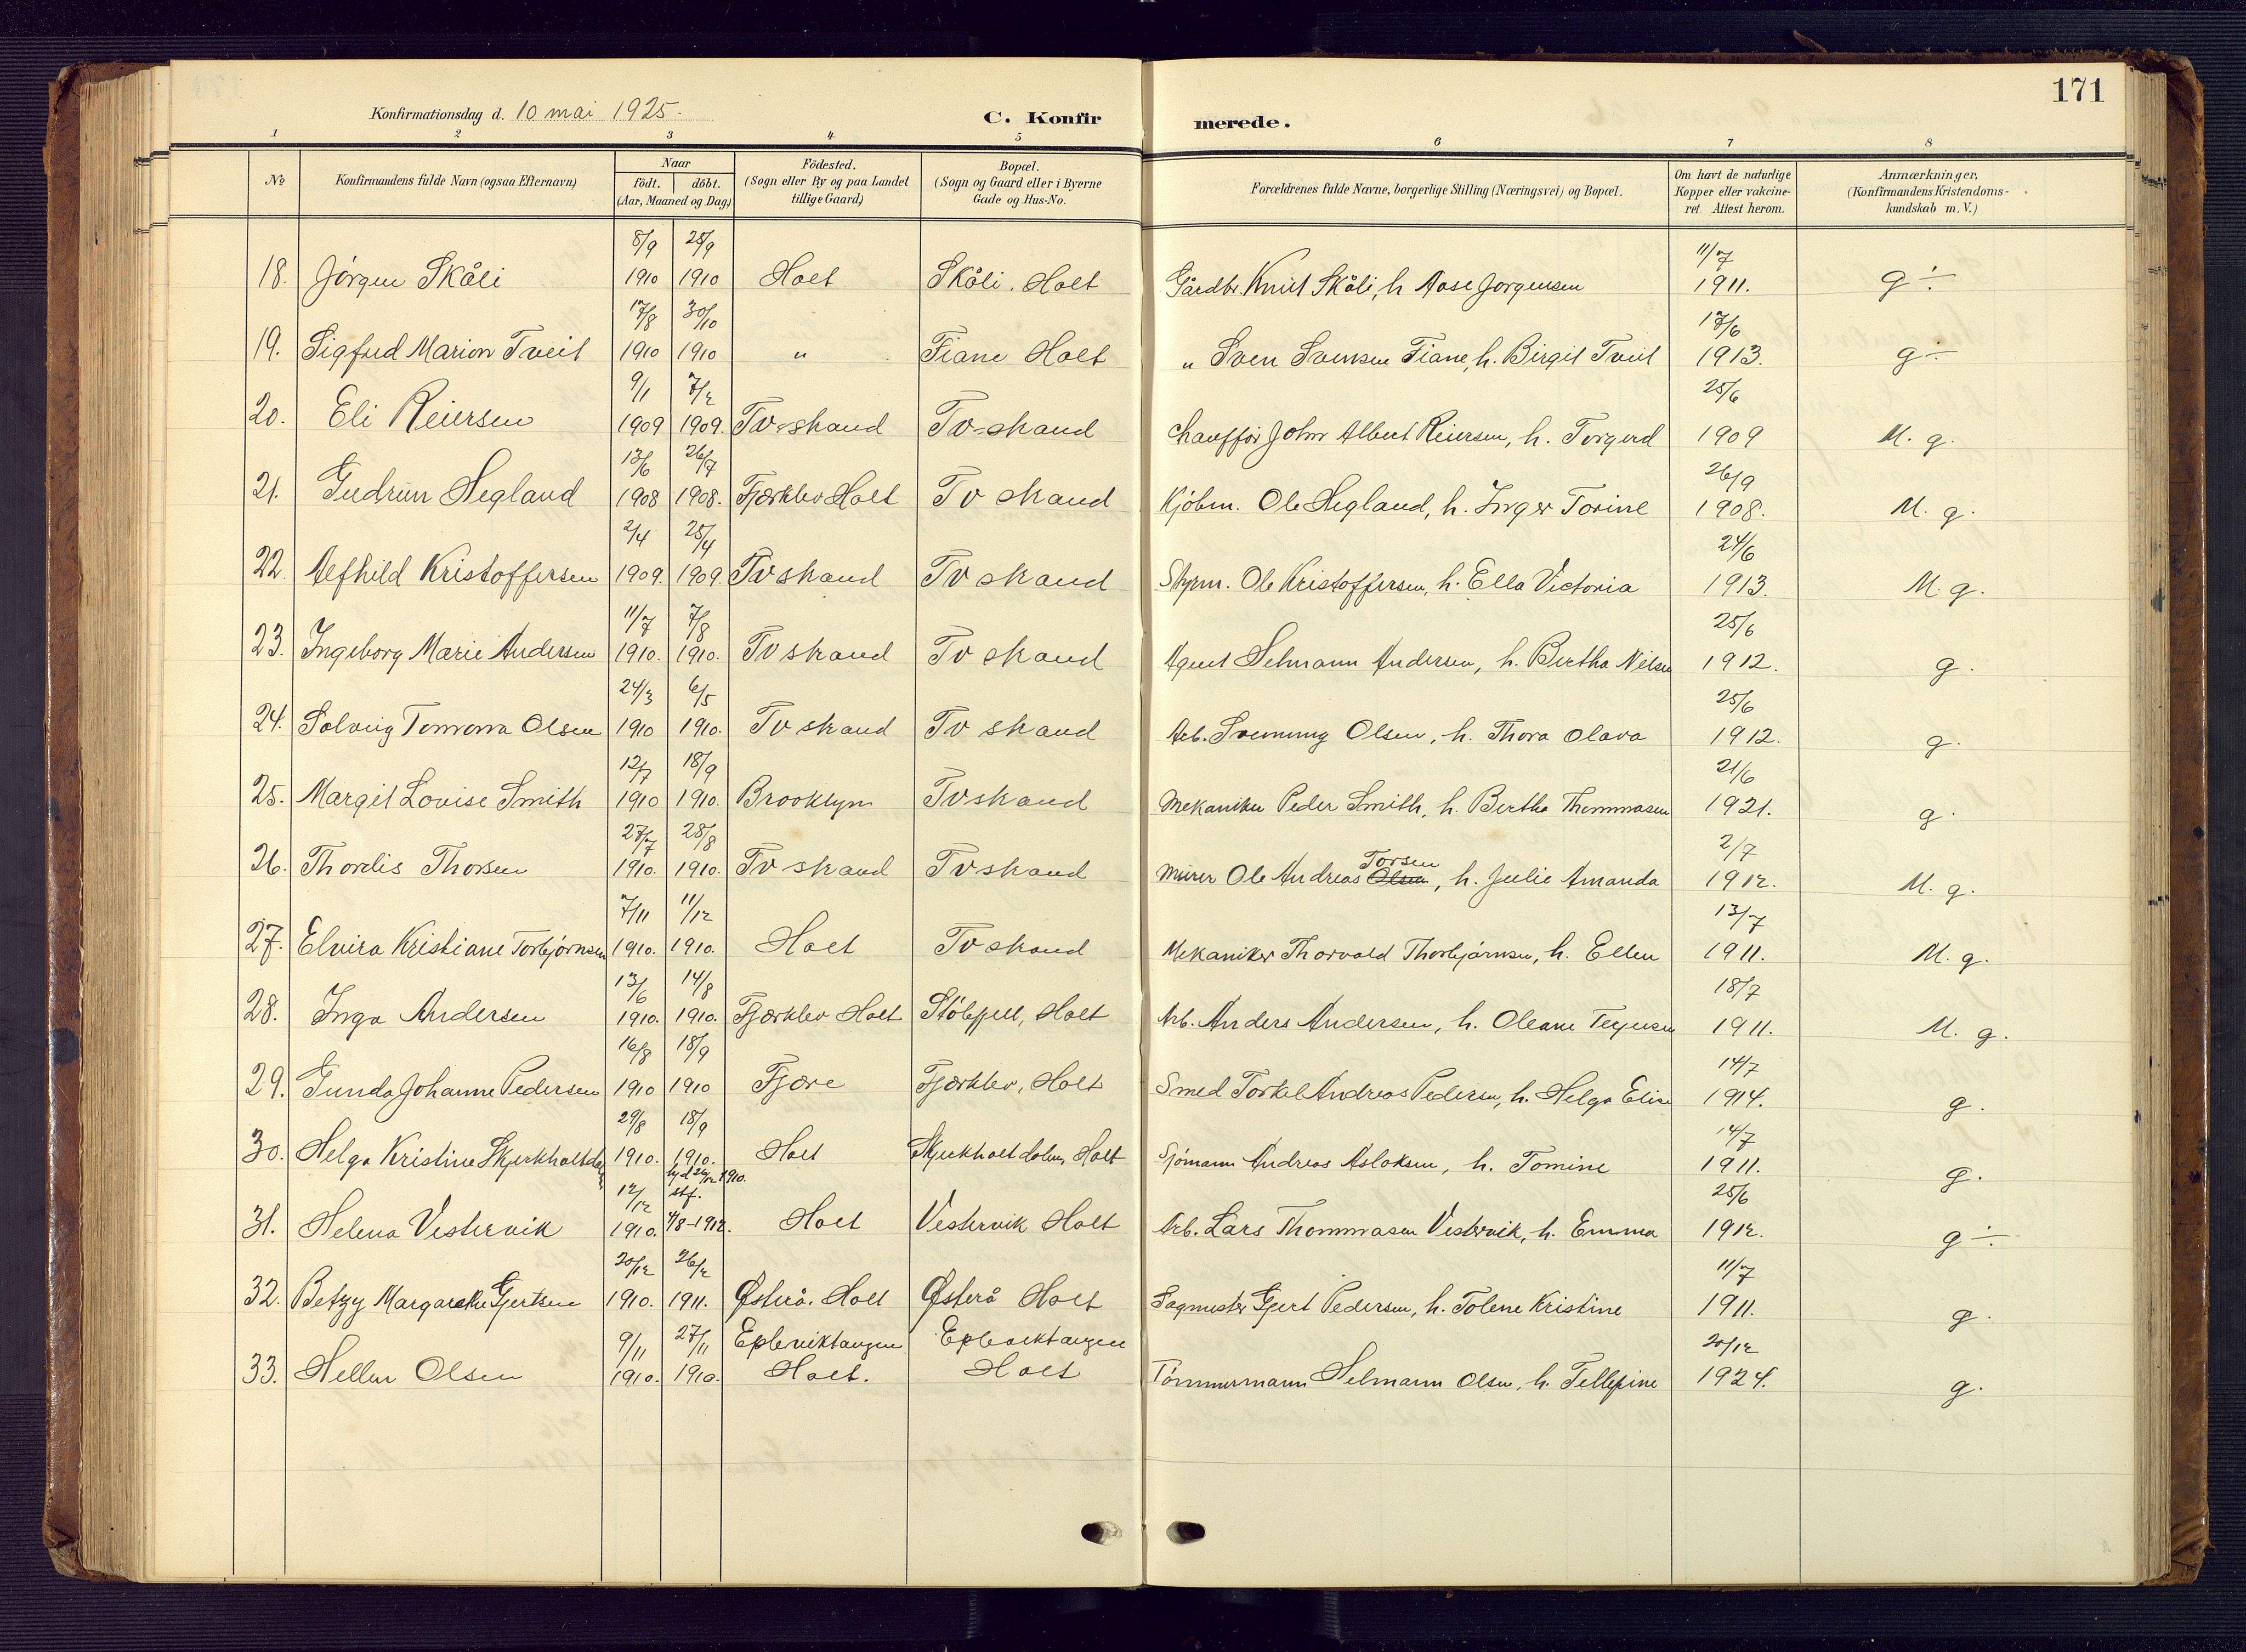 171
Konfirmationsdag d. 10 mai 1925.
C. Konfirmerede.
1 2 3 4 5 6 7 8
No
Konfirmandens fulde Navn (ogsaa Efternavn)
Naar
födt. döbt.
(Aar, Maaned og Dag)
Födested.
(Sogn eller By og paa Landet
tillige Gaard)
Bopæl.
(Sogn og Gaard eller i Byerne
Gade og Hus-No.
Forældrenes fulde Navne, borgerlige Stilling (Næringsvei) og Bopæl.
Om havt de naturlige
Kopper eller vakcine-
ret. Attest herom.
Anmærkninger,
(Konfirmandens Kristendoms-
kundskab m. V.)
8/9 25/9 11/7
18. Jörgen Skåli 1910 1910 Holt Skåli. Holt Gårdbr. Knut Skåli, h. Aase Jorgensen 1911. g ÷
17/8 30/10 17/6
19. Sigfred Marion Tveit 1910 1910 " Fiane Holt " Sven Svensen Fiane, h. Birgit Tveit 1913. g ÷
9/1 7/2 25/6
20. Eli Reiersen 1909 1909. Tv-strand Tv-strand Chauffør John Albert Reiersen, h. Torgerd 1909 M. g.
13/6 26/7 26/9
21. Gudrun Hegland 1908 1908. Fjærklev Holt Tv strand Kjøbm. Ole Hegland, h. Inger Torine 1908. M. g.
2/4 25/4 24/6
22. Alfhild Kristoffersen 1909. 1909. Tv strand Tv strand Styrm. Ole Kristoffersen, h. Ella Victoria 1913. M. g.
11/7 7/8 25/6
23. Ingeborg Marie Andersen 1910. 1910. Tv strand Tv strand Agent Selmann Andersen, h. Bertha Nilsen 1912. g.
24/3 6/5 25/6
24. Solveig Tomona Olsen 1910 1910. Tv strand Tv strand Arb. Svenning Olsen, h. Thora Olava 1912. g.
12/7 18/9 21/6
25. Margit Lovise Smith 1910 1910. Brooklyn Tv strand Mekaniker Peder Smith, h. Bertha Thommasen 1921. g.
27/7 28/8 2/7
26. Thordis Thorsen 1910. 1910. Tv strand Tv strand Murer Ole Andreas Olsen Torsen, h. Julie Amanda 1912. M. g.
7/11 11/12 13/7
27. Elvira Kristiane Torbjörnsen 1910. 1910. Holt Tv strand Mekaniker Thorvald Thorbjørnsen, h. Ellen 1911. M. g.
13/6 14/8 18/7
28. Inga Andersen 1910. 1910. Fjærklev Holt Stölefjell, Holt Arb. Anders Andersen, h. Oleane 1911. M. g.
16/8 18/9 14/7
29. Gunda Johanne Pedersen 1910 1910 Fjære Fjærklev, Holt Smed Torkel Andreas Pedersen, h. Helga Elise 1914. g.
29/8 18/9 14/7
30. Helga Kristine Skjerkholtdal 1910. 1910. Holt Skjerkholtdalen, Holt Sjömann Andreas Aslaksen, h. Tomine 1911. g.
12/12 hjd 26/12 1910. stf. 25/6
31. Helena Vestervik 1910. 4/8-1912. Holt Vestervik Holt Arb. Lars Thommasen Vestervik, h. Emma 1912. g ÷
20/12 26/2 11/7
32. Betzy Margarethe Gjertsen 1910. 1911. Østerå. Holt Østerå Holt Sagmester Gjert Pedersen, h. Tolene Kristine 1911. g.
9/11 27/11 Epleviktangen Eplevektangen 20/12
33. Hellen Olsen 1910. 1910. Holt. Holt Tömmermann Selmann Olsen, h. Tellefine 1924. g.